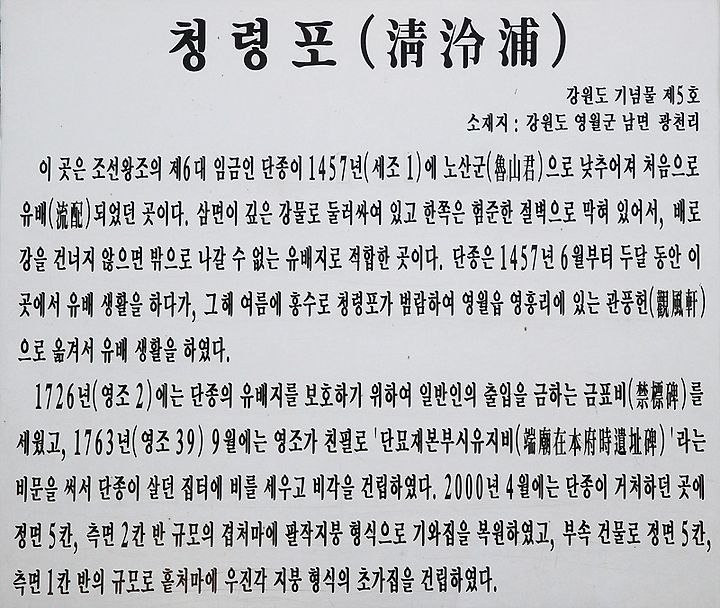 청령포(淸泠浦)
강원도 기념물 제5호
소재지 : 강원도 영월군 남면 광천리
이 곳은 조선왕조의 제6대 임금인 단종이 1457년(세조 1)에 노산군(魯山君)으로 낮추어져 처음으로
유배(流配)되었던 곳이다. 삼면이 깊은 강물로 둘러싸여 있고 한쪽은 험준한 절벽으로 막혀 있어서, 배로
강을 건너지 않으면 밖으로 나갈 수 없는 유배지로 적합한 곳이다. 단종은 1457년 6월부터 두달 동안 이
곳에서 유배 생활을 하다가, 그해 여름에 홍수로 청령포가 범람하여 영월읍 영흥리에 있는 관풍헌(觀風軒)
으로 옮겨서 유배 생활을 하였다.
1726년(영조 2)에는 단종의 유배지를 보호하기 위하여 일반인의 출입을 금하는 금표비(禁標碑)를
세웠고, 1763년(영조 39) 9월에는 영조가 친필로 '단묘재본부시유지비(端廟在本府時遺址碑)'라는
비문을 써서 단종이 살던 집터에 비를 세우고 비각을 건립하였다. 2000년 4월에는 단종이 거처하던 곳에
정면 5칸, 측면 2칸 반 규모의 겹처마에 팔작지붕 형식으로 기와집을 복원하였고, 부속 건물로 정면 5칸,
측면 1칸 반의 규모로 홑처마에 우진각 지붕 형식의 초가집을 건립하였다.